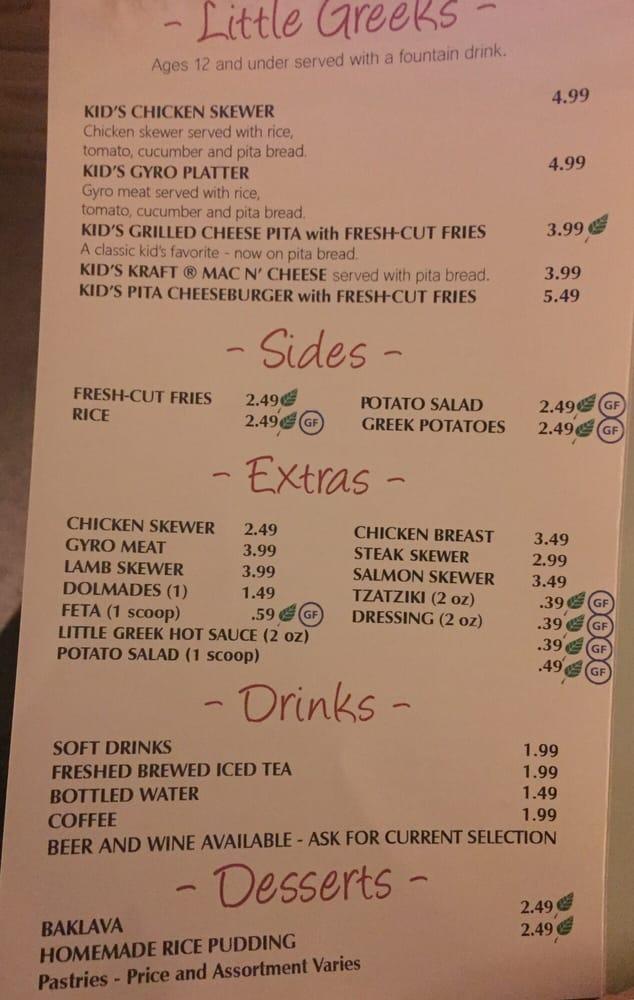 - Little Greeks -
Ages 12 and under served with a fountain drink.
KID'S CHICKEN SKEWER 4.99
Chicken skewer served with rice,
tomato, cucumber and pita bread.
KID'S GYRO PLATTER 4.99
Gyro meat served with rice,
tomato, cucumber and pita bread.
KID'S GRILLED CHEESE PITA with FRESH-CUT FRIES 3.99
A classic kid's favorite - now on pita bread.
KID'S KRAFT ® MAC N' CHEESE served with pita bread. 3.99
KID'S PITA CHEESEBURGER with FRESH-CUT FRIES 5.49
- Sides -
FRESH-CUT FRIES 2.49 POTATO SALAD 2.49 GF
RICE 2.49 GF GREEK POTATOES 2.49 GF
- Extras -
CHICKEN SKEWER 2.49 CHICKEN BREAST 3.49
GYRO MEAT 3.99 STEAK SKEWER 2.99
LAMB SKEWER 3.99 SALMON SKEWER 3.49
DOLMADES (1) 1.49 TZATZIKI (2 oz) .39 GF
FETA (1 scoop) .59 GF DRESSING (2 oz) .39 GF
LITTLE GREEK HOT SAUCE (2 oz) .39 GF
POTATO SALAD (1 scoop) .49 GF
- Drinks -
SOFT DRINKS 1.99
FRESHED BREWED ICED TEA 1.99
BOTTLED WATER 1.49
COFFEE 1.99
BEER AND WINE AVAILABLE - ASK FOR CURRENT SELECTION
- Desserts -
BAKLAVA 2.49
HOMEMADE RICE PUDDING 2.49
Pastries - Price and Assortment Varies